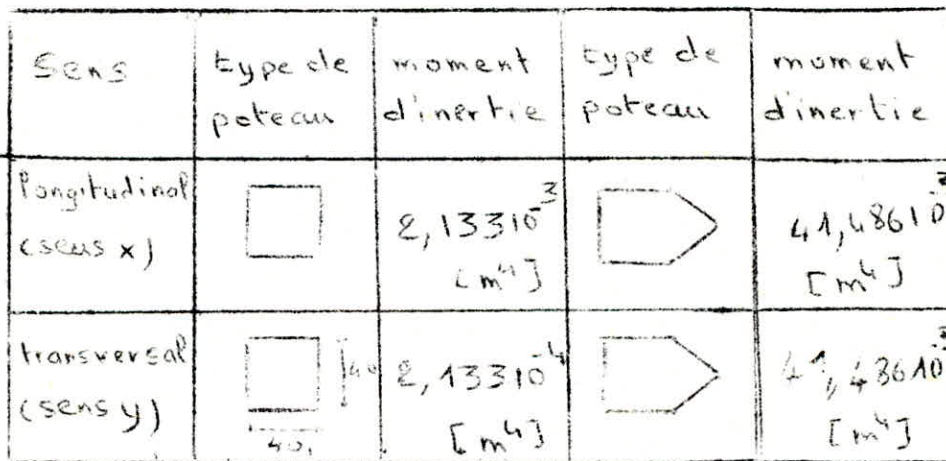 Sens
type de
poteau
moment
d'inertie
type de
poteau
moment
d'inertie
longitudinal
(sens x)
2,13310⁻³
[m⁴]
41,48610⁻³
[m⁴]
transversal
(sens y)
40
40
2,13310⁻⁴
[m⁴]
41,48610⁻³
[m⁴]